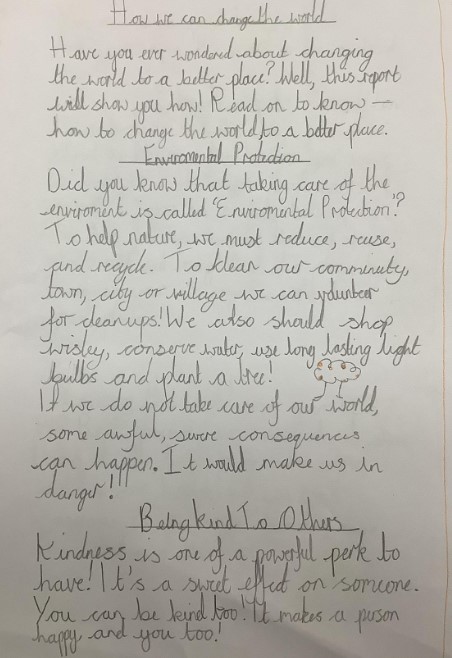 How we can change the world
Have you ever wondered about changing
the world to a better place? Well, this report
will show you how! Read on to know —
how to change the world to a better place.
Enviromental Protection
Did you know that taking care of the
enviroment is called 'Enviromental Protection'?
To help nature, we must reduce, reuse,
and recycle. To clean our community,
town, city or village we can volunteer
for cleanups! We also should shop
wisley, conserve water, use long lasting light
bulbs and plant a tree!
If we do not take care of our world,
some awful, severe consequences
can happen. It would make us in
danger!
Being Kind To Others
Kindness is one of a powerful perk to
have! It's a sweet effect on someone.
You can be kind too! It makes a person
happy and you too!